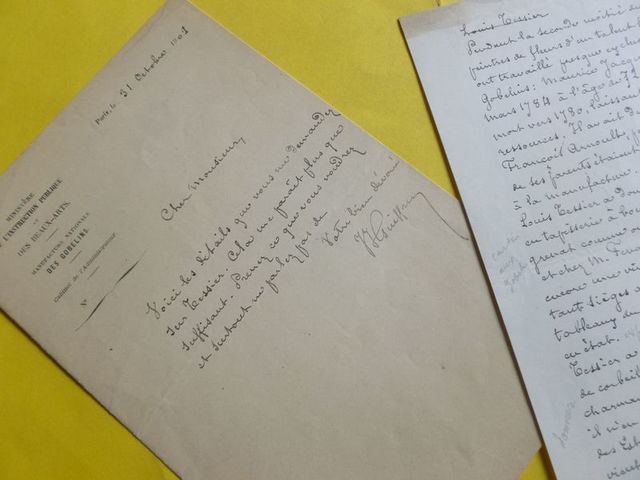 Paris, le 31 Octobre 1901
MINISTÈRE
DE L'INSTRUCTION PUBLIQUE
ET
DES BEAUX-ARTS.
MANUFACTURES NATIONALES
DES GOBELINS.
Cabinet de l'Administrateur.
N°
Cher Monsieur,
Voici les détails que vous me demandez
sur Tessier. Cela me paraît plus que
suffisant. Prenez ce que vous voudrez
et surtout ne parlez pas de
Votre bien dévoué
J Guiffrey
Louis Tessier
Pendant la seconde moitié du
peintres de fleurs d'un talent
ont travaillé presque exclus
Gobelins : Maurice Jacqu
Mars 1784 à l'âge de 72
mort vers 1780, laissan
ressources. Il avait
François Arnoult
de ses parents étaient
à la manufacture.
Louis Tessier a
en tapisserie à
grand comme
et chez M.
encore une
tant sièges
tableaux
en état.
Tessier a
de corbeil
charman
il n'en
des Est